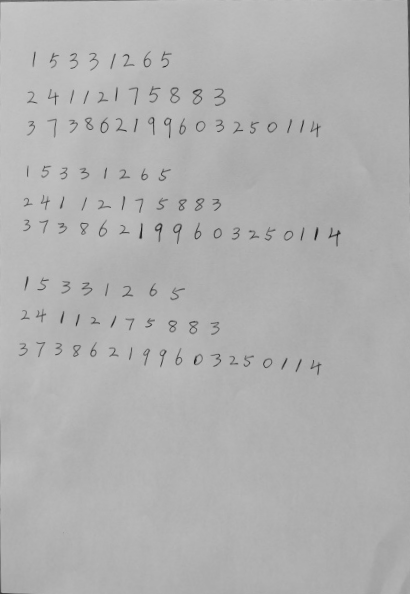 15331265
24112175883
373862199603250114
15331265
24112175883
373862199603250114
15331265
24112175883
373862199603250114